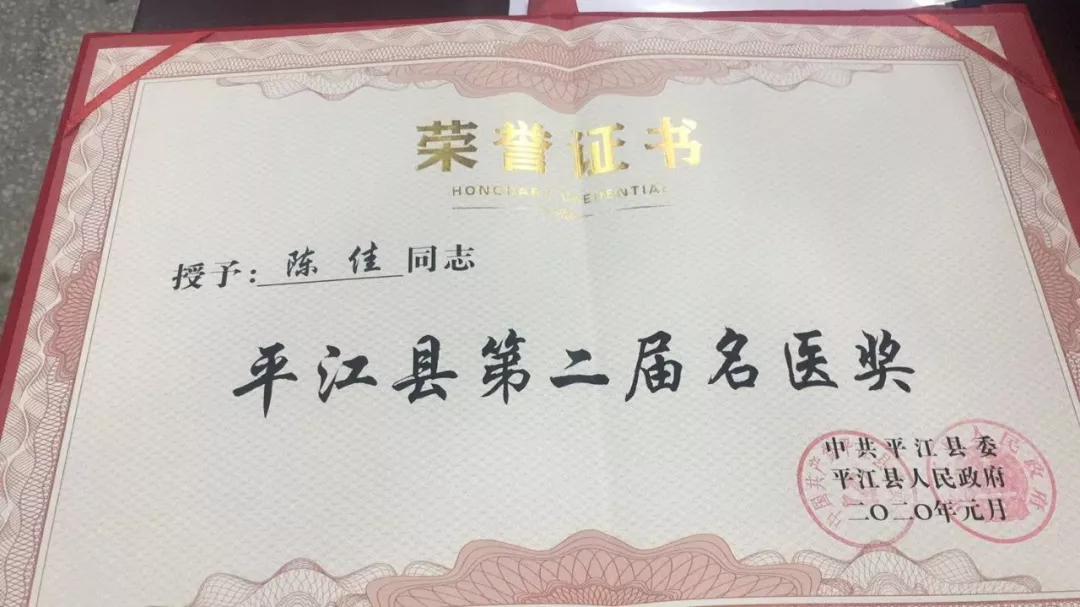 荣誉证书
授予：陈佳同志
平江县第二届名医奖
中共平江县委
平江县人民政府
二〇二〇年元月